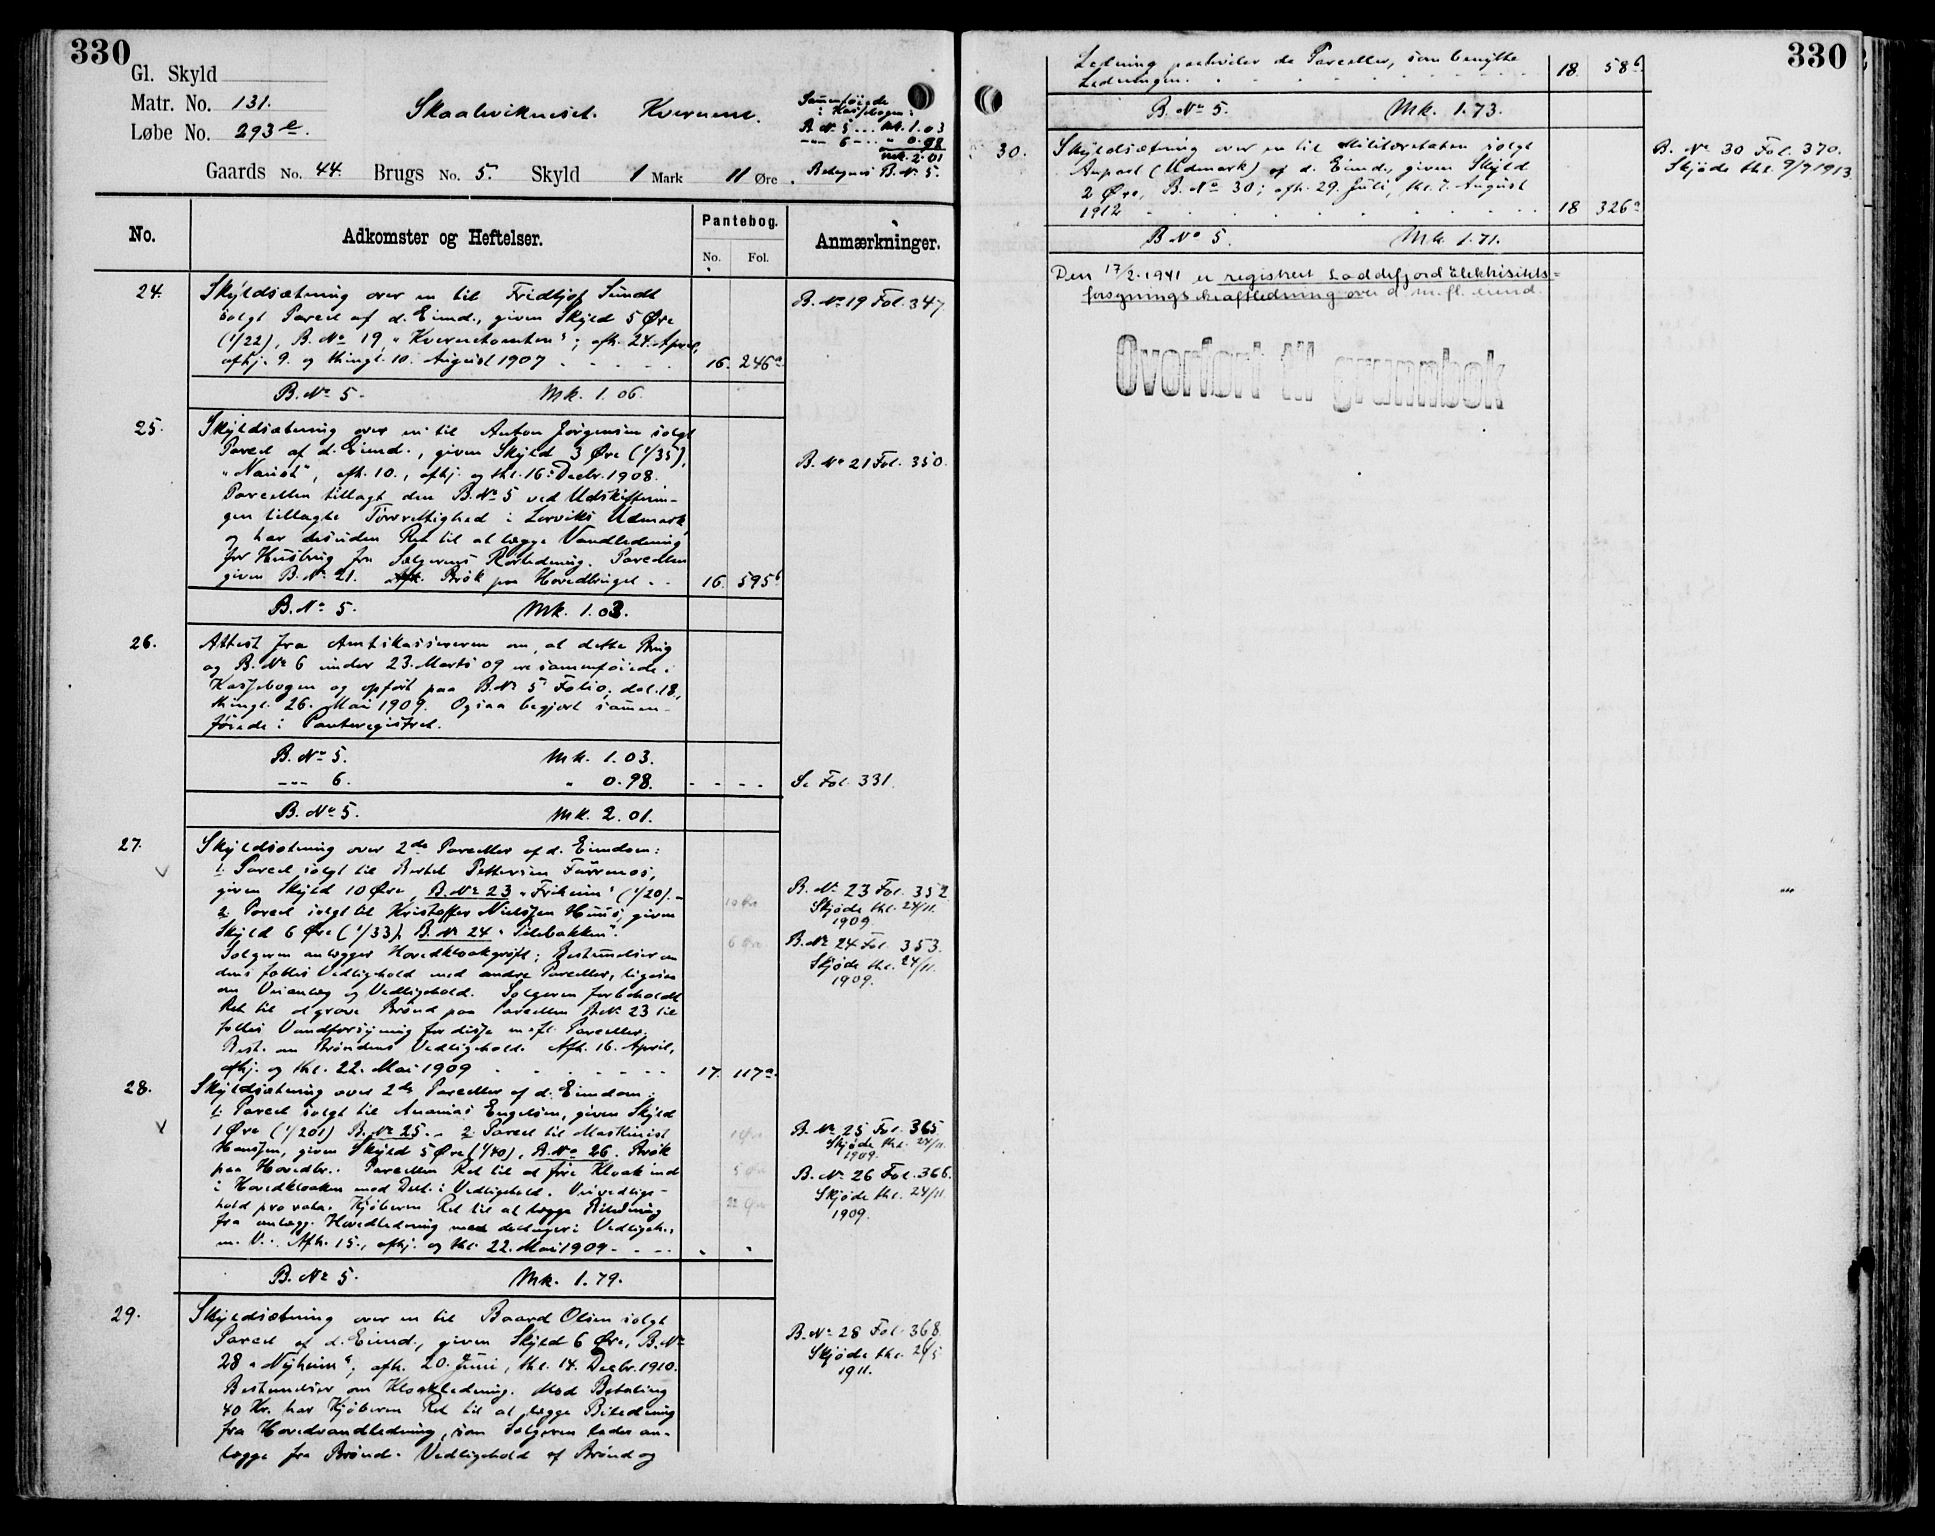 330
Gl. Skyld
Matr. No. 131.
Løbe No. 293e.
Skaalvikneset. Kvernene.
Sammenføiede
i Kassebogen:
B. No 5 ... Mk. 1.03
--- 6 - .. " 0.98
Mk. 2.01
Betegnes B. No 5.
Gaards No. 44. Brugs No. 5. Skyld 1 Mark 11 Øre.
No.
Adkomster og Heftelser.
Pantebog.
No. Fol.
Anmærkninger.
24. Skyldsætning over en til Fridtjof Sundt
solgt Parcel af d. Eiend., given Skyld 5 Øre
(1/22), B. No 19, "Kvernetomten"; afh. 24. April,
afhj. 9. og thingl. 10. August 1907 16. 246a
B. No 19 Fol. 347.
B. No 5. Mk. 1.06.
25. Skyldsætning over en til Anton Jørgensen solgt
Parcel af d. Eiend., given Skyld 3 Øre (1/35),
"Naust", afh. 10., afhj. og thl. 16. Decbr. 1908.
Parcellen tillagt den B. No 5 ved Udskiftnin-
gen tillagte Torvrettighed i Lerviks Udmark
og har desuden Ret til at lægge Vandledning
for Husbrug fra Sælgerens Rørledning. Parcellen
given B. No 21. Brøk paa Hovedbruget - - 16. 595b
B. No 21 Fol. 350.
B. No 5. Mk. 1.03.
26. Attest fra Amtskassereren om, at dette Brug
og B. No 6 under 23. Marts 09 ere sammenføiede i
Kassebogen og opført paa B. No 5 Folio; dat. 18.,
thingl. 26. Mai 1909. Ogsaa begjært sammen-
føiede i Panteregistret.
B. No 5. Mk. 1.03.
--- 6. " 0.98. - - - -
Se Fol. 331.
B. No 5. Mk. 2.01.
27. Skyldsætning over 2de Parceller af d. Eiendom:
1. Parcel solgt til Bertel Pettersen Furrenes,
given Skyld 10 Øre, B. No 23 "Friheim" (1/20). -
2. Parcel solgt til Kristoffer Nielssen Huus, given
Skyld 6 Øre (1/33), B. No 24 "Solebakken".
Sælgeren anlægger Hovedkloakgrøft; Bestemmelser om
dens fælles Vedligehold med andre Parceller, ligesaa
om Veianlæg og Vedligehold. Sælgeren forbeholdt
Ret til at grave Brønd paa Parcellen B. No 23 til
fælles Vandforsyning for disse m. fl. Parceller.
Best. om Brøndens Vedligehold. Afh. 16. April,
afhj. og thl. 22. Mai 1909 17. 117a.
10 Øre
6 Øre
B. No 23 Fol. 352
Skjøde thl. 24/11.
1909
B. No 24 Fol. 353.
Skjøde thl. 24/11.
1909.
28. Skyldsætning over 2de Parceller af d. Eiendom:
1. Parcel solgt til Ananias Engelsen, given Skyld
1 Øre (1/201) B. No 25. - 2. Parcel til Maskinist
Hanssen, given Skyld 5 Øre (1/40), B. No 26. Brøk
paa Hovedbr.. Parcellen Ret til at føre Kloak ind
i Hovedkloaken mod Delt. i Vedligehold. Veivedlige-
hold pro rata. Kjøberen Ret til at lægge Biledning
fra anlægg. Hovedledning med deltager i Vedligeh.
m. V.. Afh. 15., afhj. og thl. 22. Mai 1909 - - - " "
1 Øre
5 Øre
22 Øre
B. No 25 Fol. 365.
Skjøde thl. 24/11.
1909.
B. No 26 Fol. 366.
Skjøde thl. 24/11.
1909.
B. No 5. Mk. 1.79.
29. Skyldsætning over en til Baard Olsen solgt
Parcel af d. Eiend., given Skyld 6 Øre, B. No
28 "Nyheim"; afh. 20. Juni, thl. 14. Decbr. 1910.
Bestemmelser om Kloakledning. Mod Betaling
40 Kr. har Kjøberen Ret til at lægge Biledning
fra Hovedvandledning, som Sælgeren lader an-
lægge fra Brønd. Vedligehold af Brønd og
B. No 28 Fol. 368.
Skjøde thl. 24/5
1911.
330
Ledning paahviler de Parceller, som benytte
Ledningen. 18. 58b.
B. No 5. Mk. 1.73.
30. Skyldsætning over en til Militæretaten solgt
Anpart (Udmark) af d. Eiend., given Skyld
2 Øre, B. No 30; afh. 29. Juli, thl. 7. August
1912 18 326a
B. No 30 Fol. 370.
Skjøde thl. 9/7 1913.
B No 5. Mk. 1.71.
Den 17/2. 1941 er registrert Loddefjord Elektrisitets=
forsynings kraftledning over d. m. fl. eiend.
Overført til grunnbok